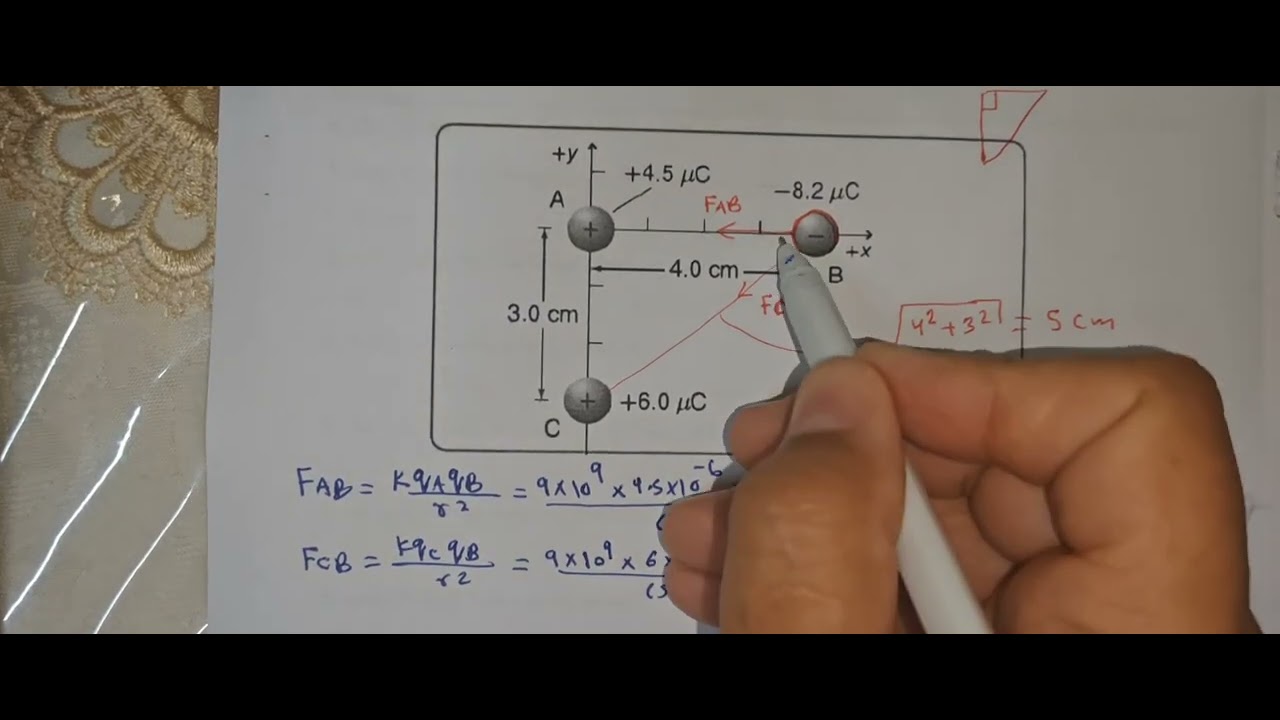 +y
+4.5 μC
A
−8.2 μC
FAB
+
−
+x
4.0 cm
B
3.0 cm
√4² + 3² = 5 cm
+
+6.0 μC
C
FAB = KqAqB / r² = 9×10⁹ × 4.5×10⁻⁶
FCB = KqCqB / r² = 9×10⁹ × 6